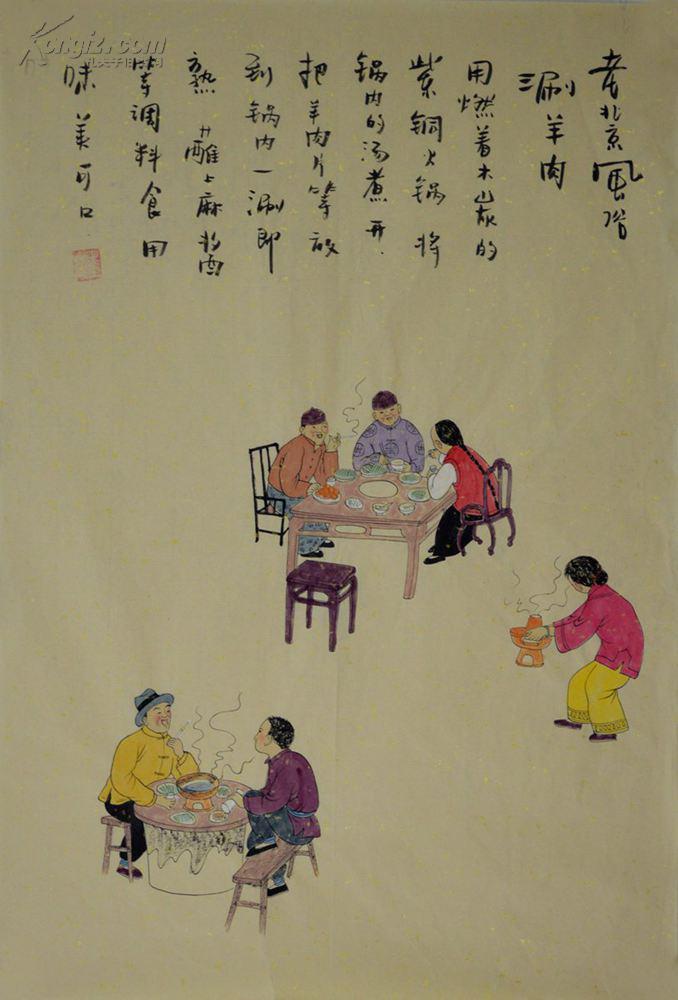 老北京风俗
涮羊肉
用燃着木炭的
紫铜火锅将
锅内的汤煮开.
把羊肉片等放
到锅内一涮即
熟 蘸上麻将
等调料食用
味美可口.
Kongfz.com
孔夫子旧书网